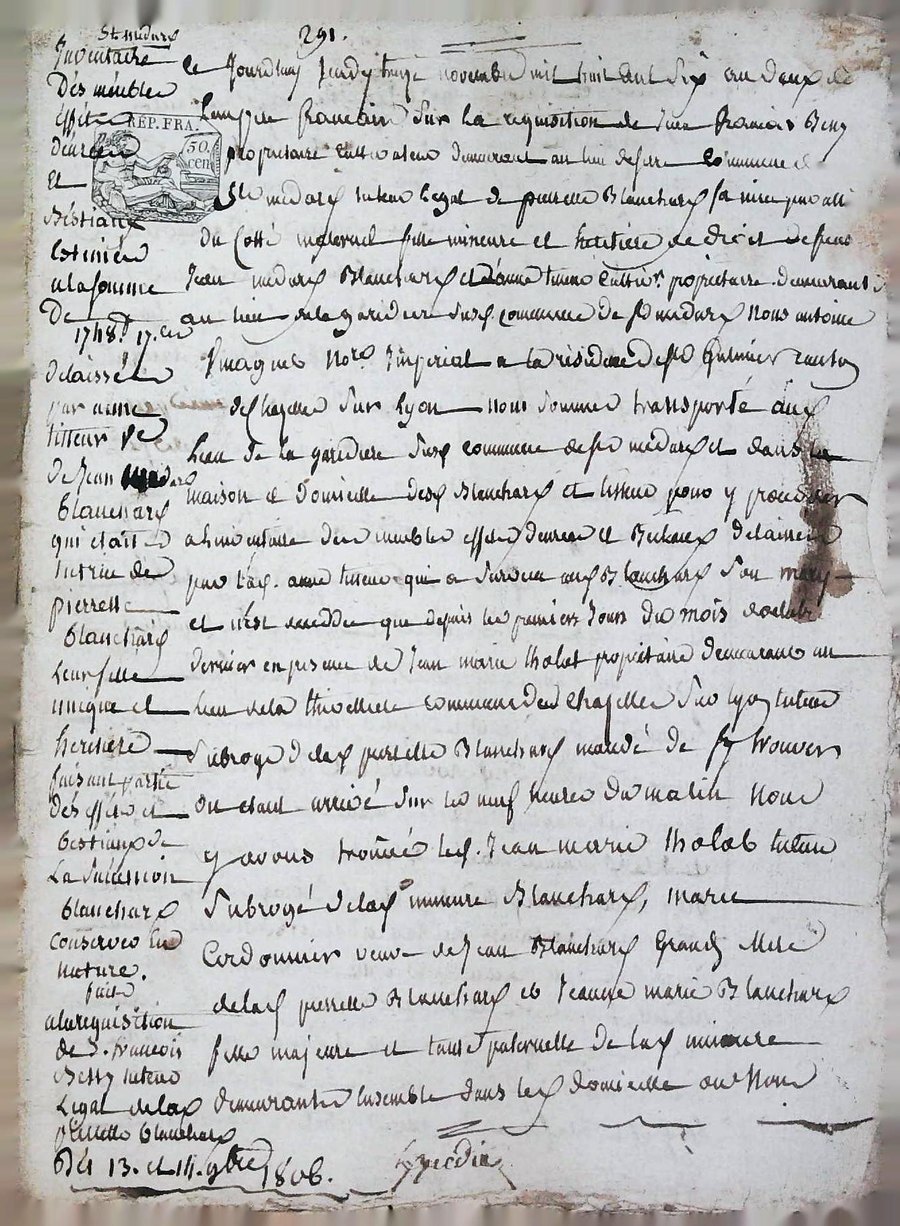 St medard
291.
Inventaire
Des meubles
effets
denrées
Et
Bestiaux
Estimés
a la somme
De
1748.# 17.s
delaissés
par anne
titteur ve
de Jean
blanchard
qui etait
tutrice de
pierrette
blanchard
leur fille
unique et
heritiere
faisant partie
des effets et
bestiaux de
La Succession
blanchard
conservés En
nature.
faite
a la requisition
de S. francois
Bessy tuteur
Legal de lad
pierrette blanchard
Des 13. et 14. 9bre 1806.
RÉP. FRA.
50. cen
ce Jourdhuy Jeudy treize novembre mil huit cent Six an deux de
Lempire francais Sur La requisition de Sieur francois Bessy
propriétaire Cultivateur Demeurant au lieu commune de
St medard tuteur Legal de pierrette Blanchard sa niece
Du Cotté maternel fille mineure et heritiere de Droit de feus
Jean medard Blanchard et D'anne Cultivr. propriétaire demeurants
au lieu de la garidiere Susd. commune de St medard Nous antoine
nore Imperial a la résidence de St Galmier canton
de Chazelles Sur Lyon nous Sommes transporté aud
Lieu de la garidiere Susd commune de St medard et dans la
maison et Domicille desd Blanchard et titteur pour y proceder
a Linventaire des meubles effets denrées et Bestiaux delaissés
par lad. anne titteur qui a Survecu aud Blanchard Son mary
et n'est decedée que depuis les premiers Jours du mois doctobre
dernier en presence de Jean marie tholot propriétaire demeurant au
Lieu de la commune de Chazelles Sur Lyon tuteur
Subrogé de lad pierrette Blanchard mandé de Sy trouver
Ou etant arrivé Sur les neuf heures du matin Nous
y avons trouvé led. Jean marie tholot tuteur
Subrogé de lad mineure Blanchard, marie
Cordonnier veuve de Jean Blanchard Grand Mere
de lad pierrette Blanchard et Jeanne marie Blanchard
fille majeure et tante paternelle de lad mineure
demeurantes Ensemble dans led domicille ou Nous
Expedié